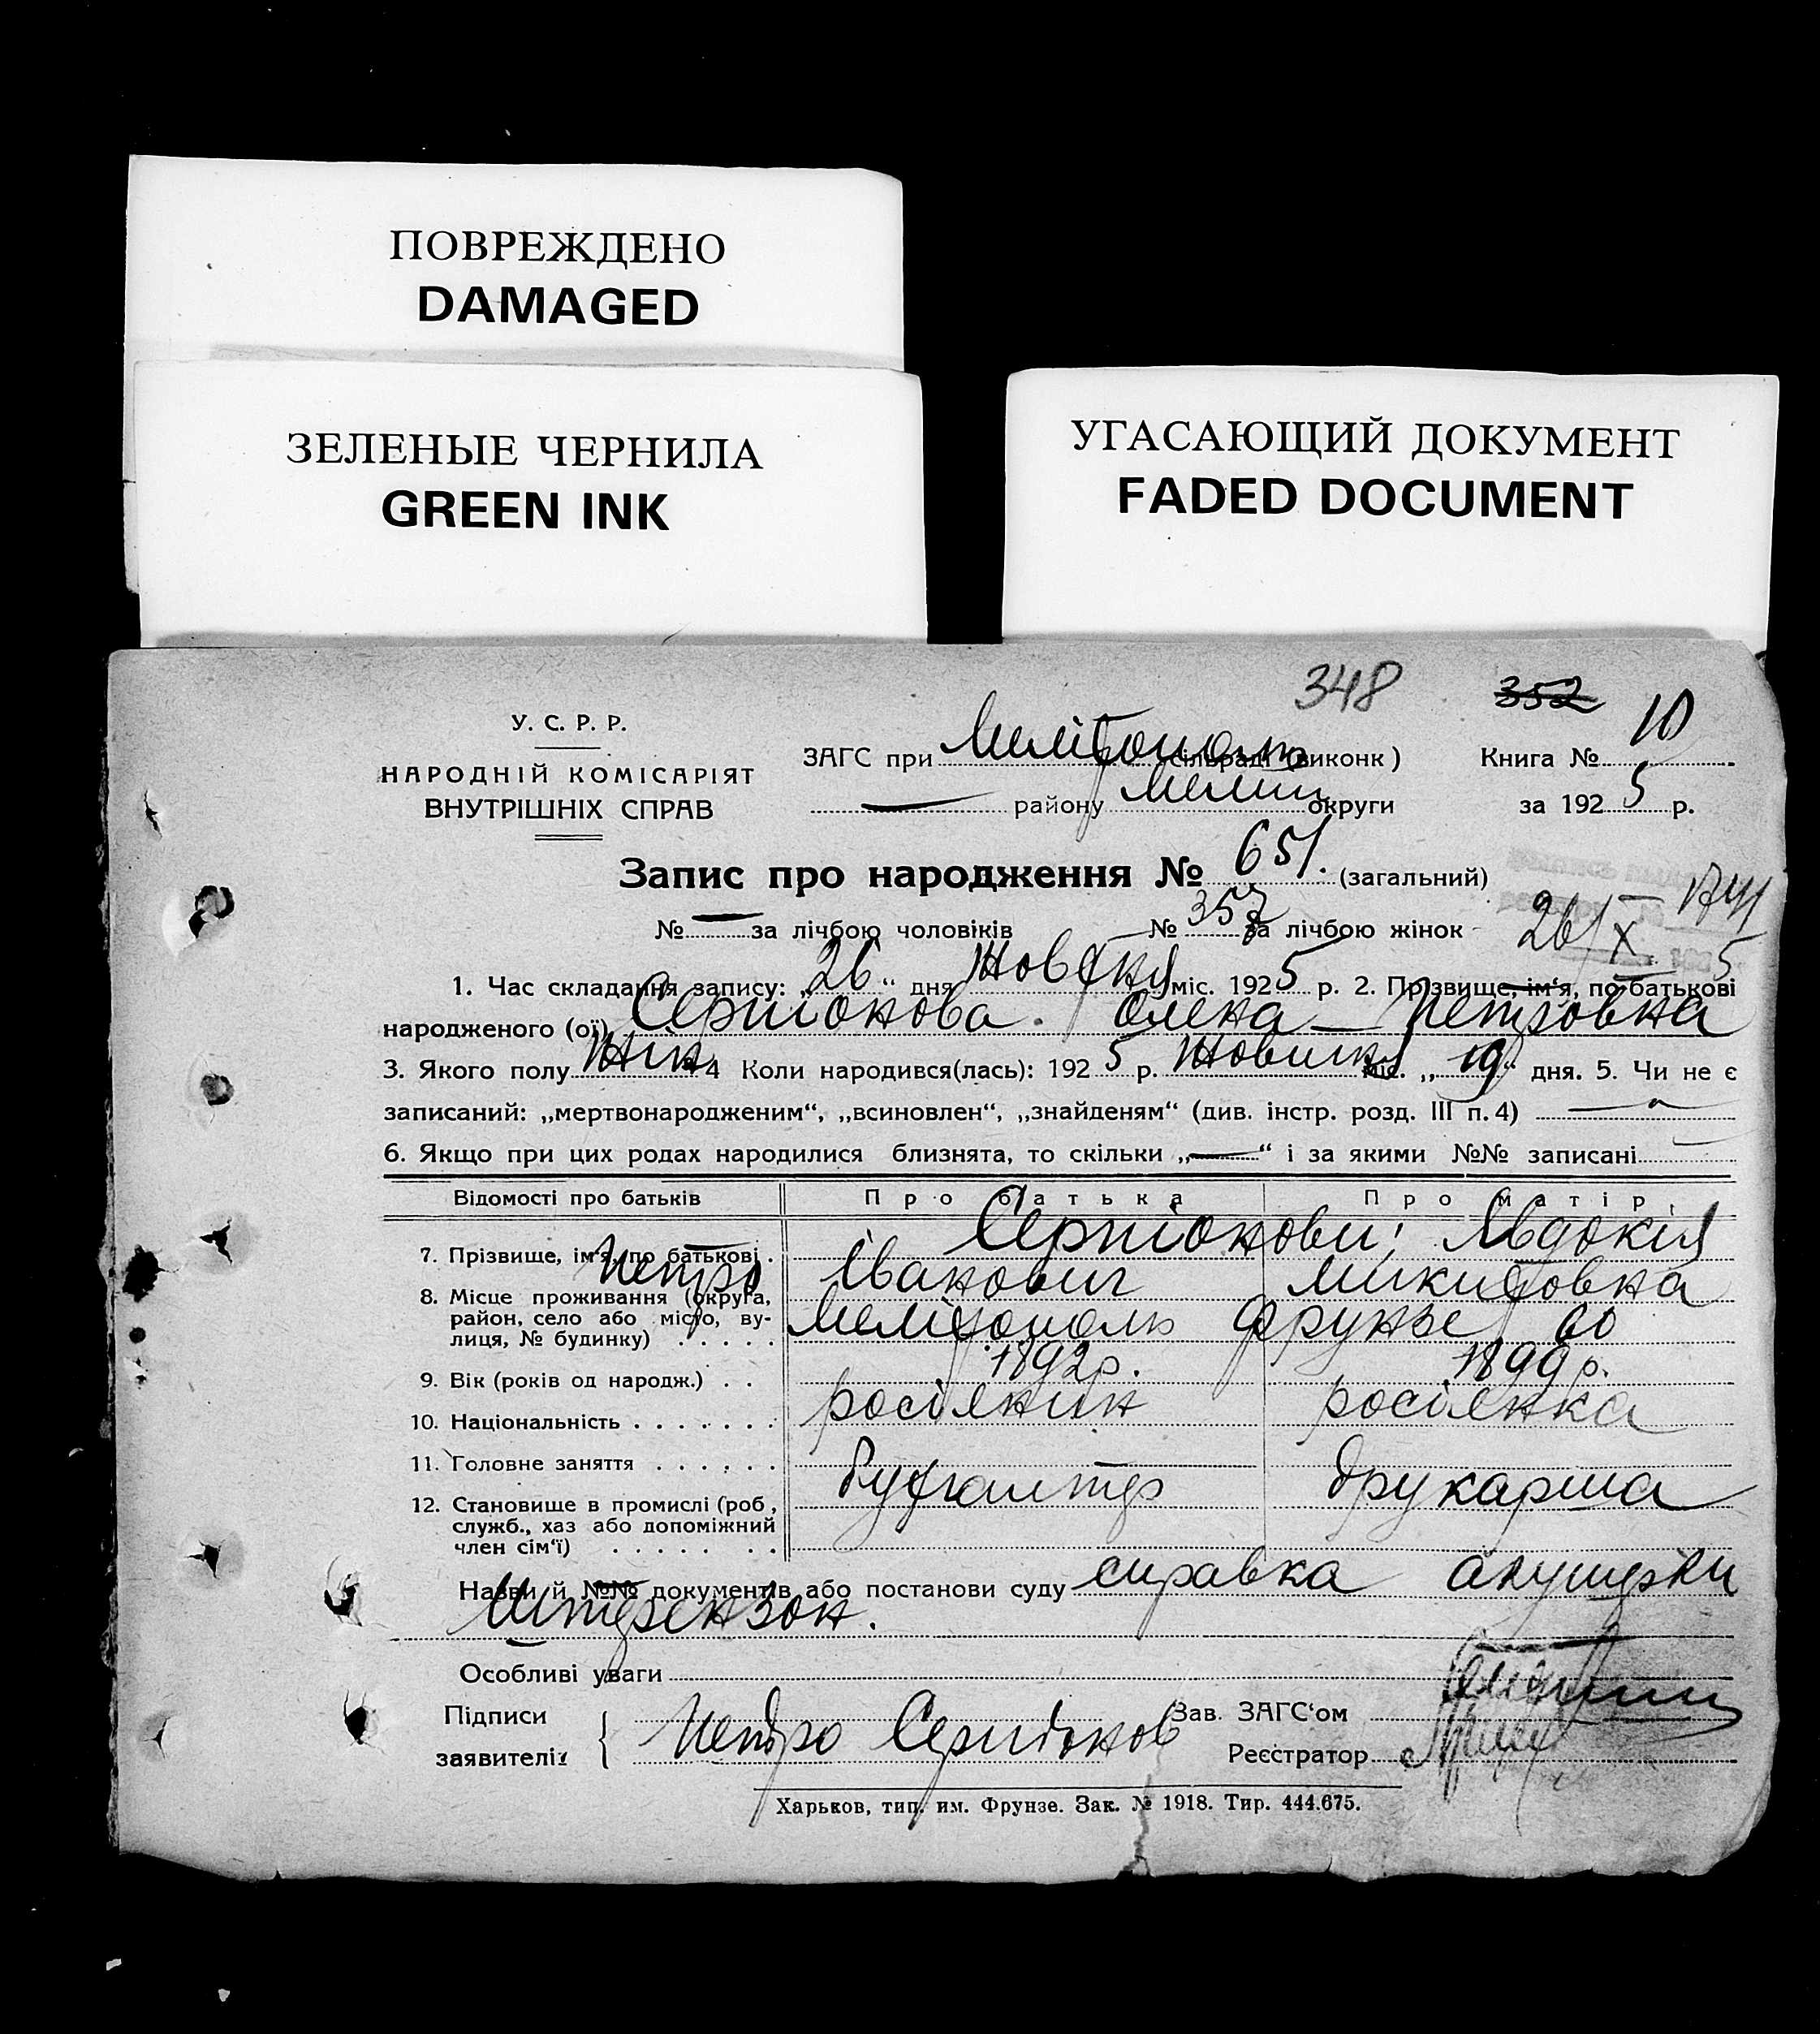 ПОВРЕЖДЕНО
DAMAGED
ЗЕЛЕНЫЕ ЧЕРНИЛА
GREEN INK
УГАСАЮЩИЙ ДОКУМЕНТ
FADED DOCUMENT
348 352
У. С. Р. Р.
НАРОДНІЙ КОМІСАРІЯТ
ВНУТРІШНІХ СПРАВ
ЗАГС при Мелітополь сільраді (виконк) Книга № 10
— району Мелит округи за 1925 р.
Запис про народження № 651. (загальний)
№ — за лічбою чоловіків № 357 за лічбою жінок
26/X 5
1. Час складання запису: „26“ дня Жовтня міс. 1925 р. 2. Прізвище, ім‘я, по батькові
народженого (ої) Сергіонова. Олена — Петровна
3. Якого полу Жін 4 Коли народився(лась): 1925 р. Жовтня міс. „19“ дня. 5. Чи не є
записаний: „мертвонародженим“, „всиновлен“, „знайденям“ (див. інстр. розд. III п. 4) —
6. Якщо при цих родах народилися близнята, то скільки „—“ і за якими №№ записані —
Відомості про батьків Про батька Про матір
7. Прізвище, ім‘я, по батькові . Сергіонови; Явдокія
Петро Іванович Микитовна
8. Місце проживання (округа, район, село або місто, вулиця, № будинку) . . . . . Мелітополь Фрунзе 60
9. Вік (років од народж.) . . 1892 р. 1899 р.
10. Національність . . . . . . . росіянин росіянка
11. Головне заняття . . . . . . бухгалтер друкарша
12. Становище в промислі (роб, служб., хаз або допоміжний член сім‘ї) . . . . . . .
Назви й №№ документів або постанови суду справка акушерки
Штерензон.
Особливі уваги
Підписи заявителів { Петро Сергіонов
Зав. ЗАГС‘ом
Реєстратор
Харьков, тип. им. Фрунзе. Зак. № 1918. Тир. 444.675.